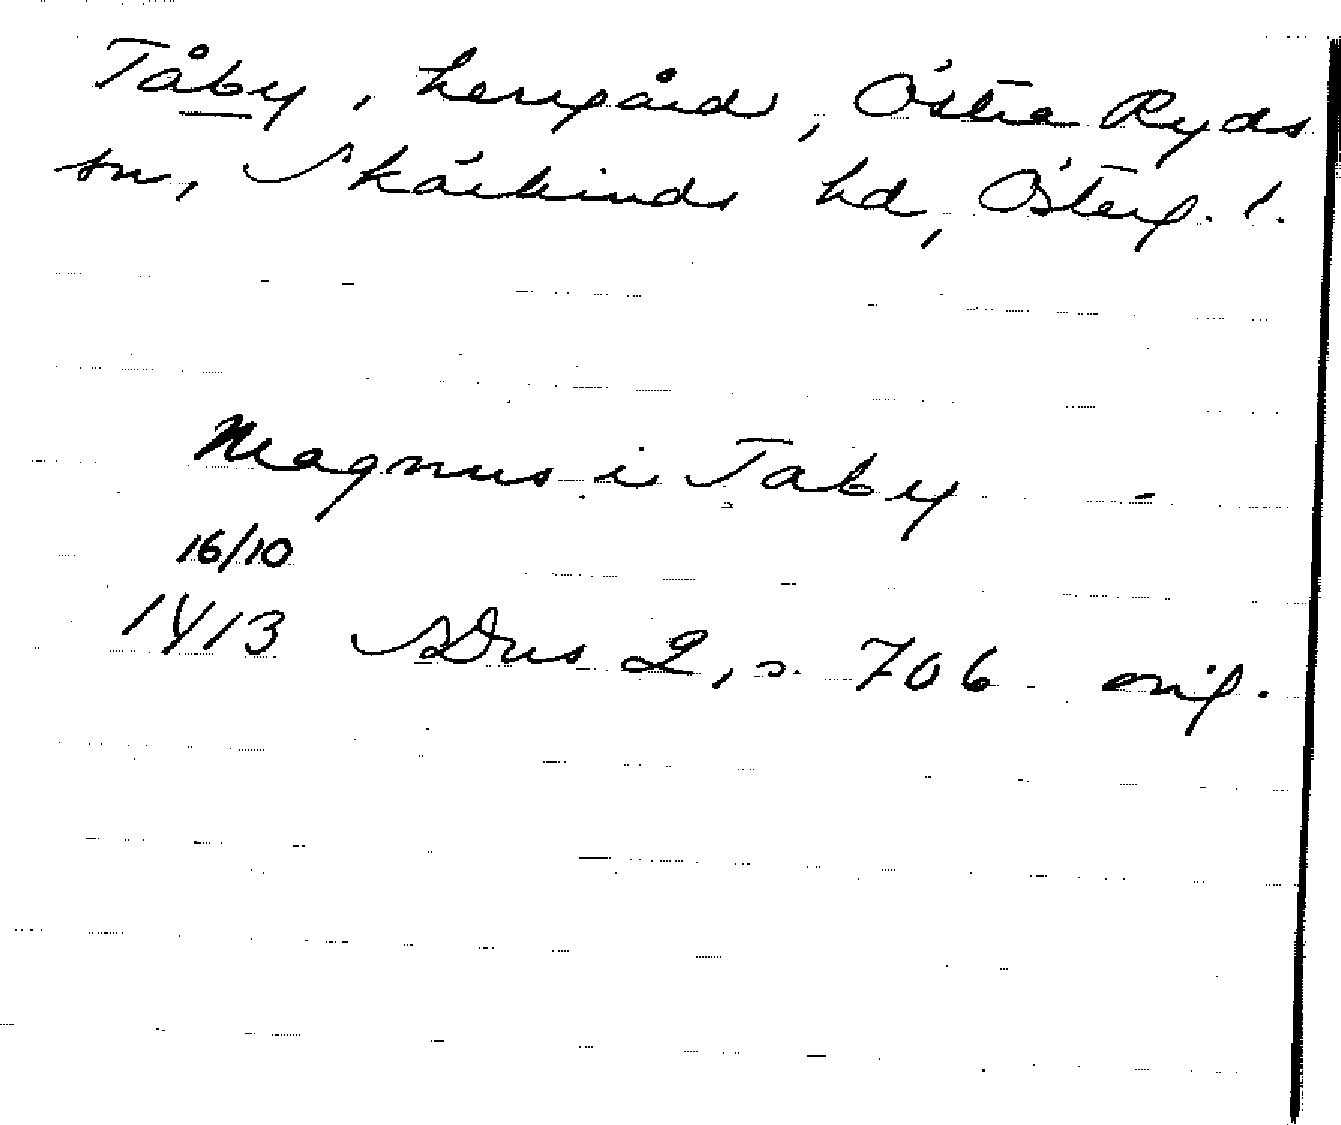 Tåby, herrgård, Östra Ryds
sn, Skärkinds hd, Österg. l.
Magnus i Taby -
16/10
1413 SDns 2, s. 706 orig.